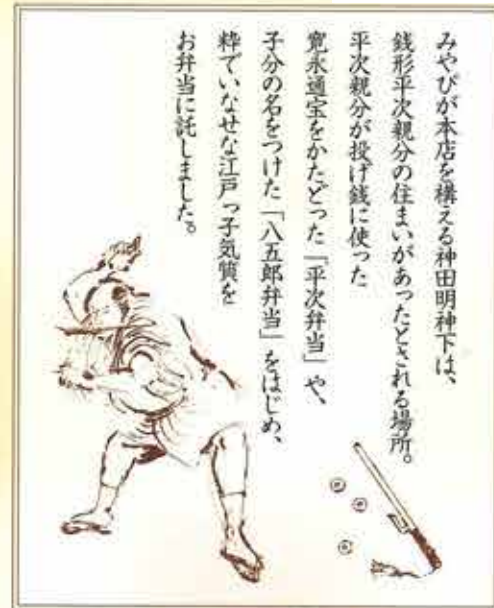 みやびが本店を構える神田明神下は、
銭形平次親分の住まいがあったとされる場所。
平次親分が投げ銭に使った
寛永通宝をかたどった「平次弁当」や、
子分の名をつけた「八五郎弁当」をはじめ、
粋でいなせな江戸っ子気質を
お弁当に託しました。